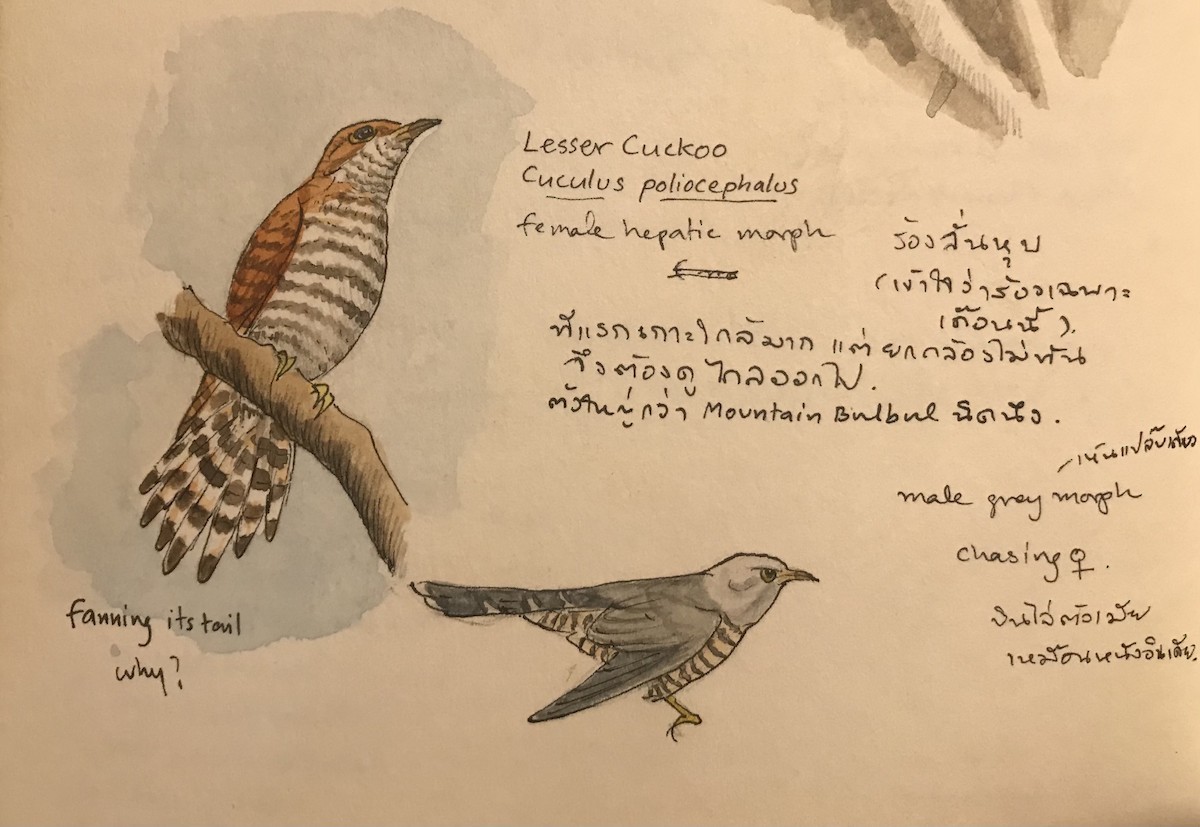 Lesser Cuckoo
Cuculus poliocephalus
female hepatic morph
ร้องลั่นหุบ
(เข้าใจว่าร้องเฉพาะ
เดือนนี้).
ทีแรกเกาะใกล้มาก แต่ยกกล้องไม่ทัน
จึงต้องดูไกลออกไป.
ตัวใหญ่กว่า Mountain Bulbul นิดนึง.
เห็นแป๊บเดียว
male grey morph
chasing ♀.
บินไล่ตัวเมีย
เหมือนหนังอินเดีย.
fanning its tail
why?